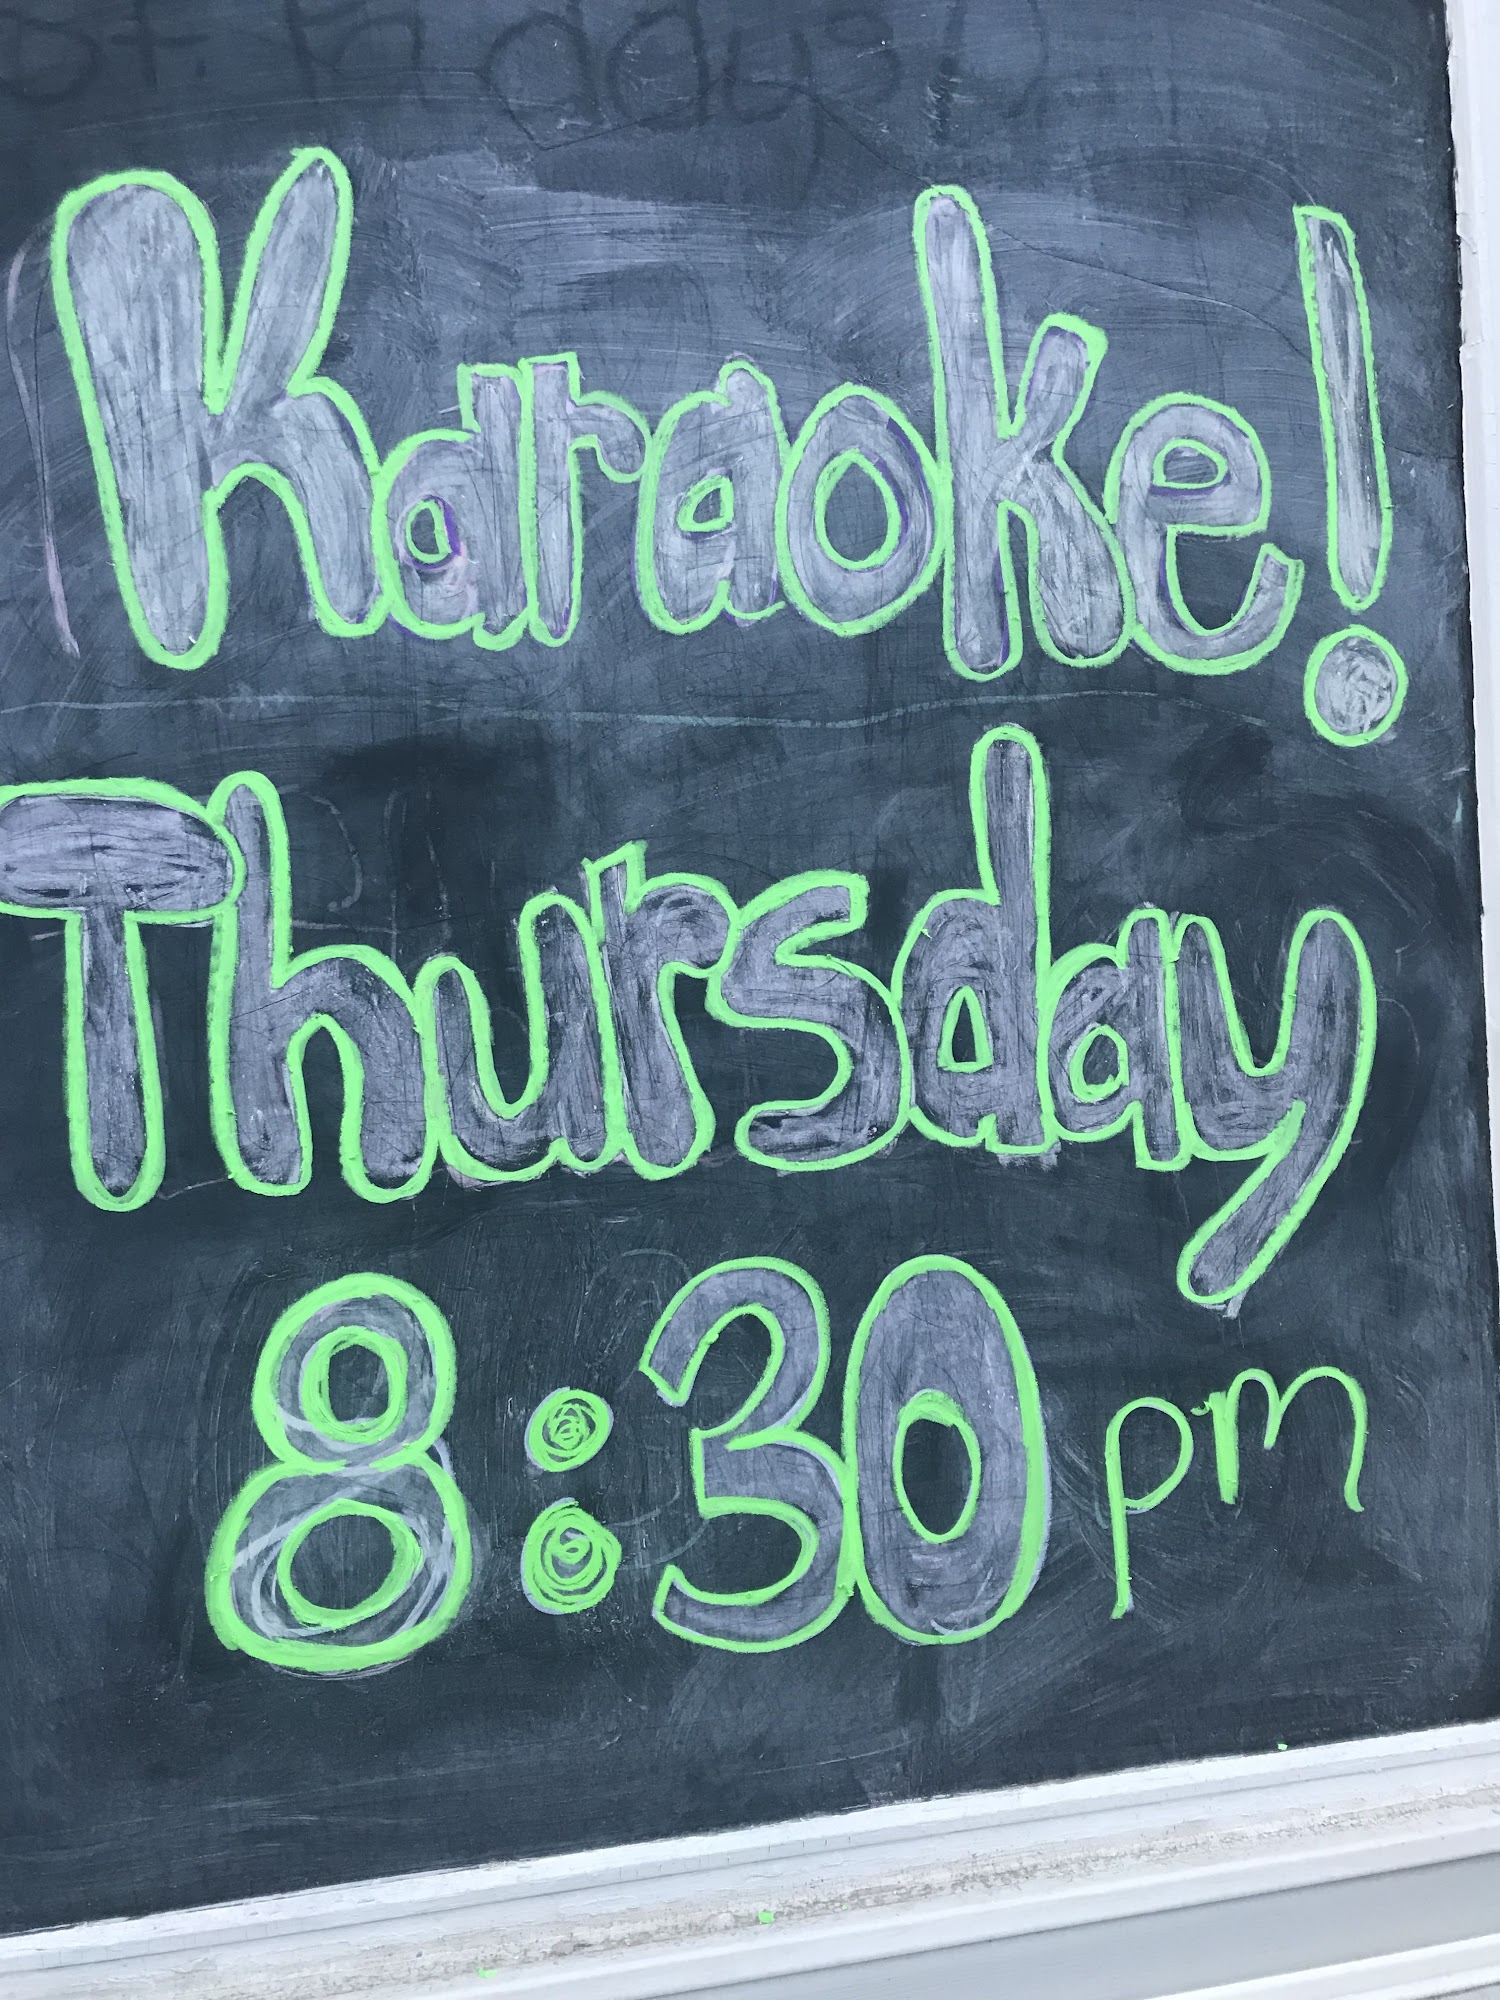 Karaoke!
Thursday
8:30 pm